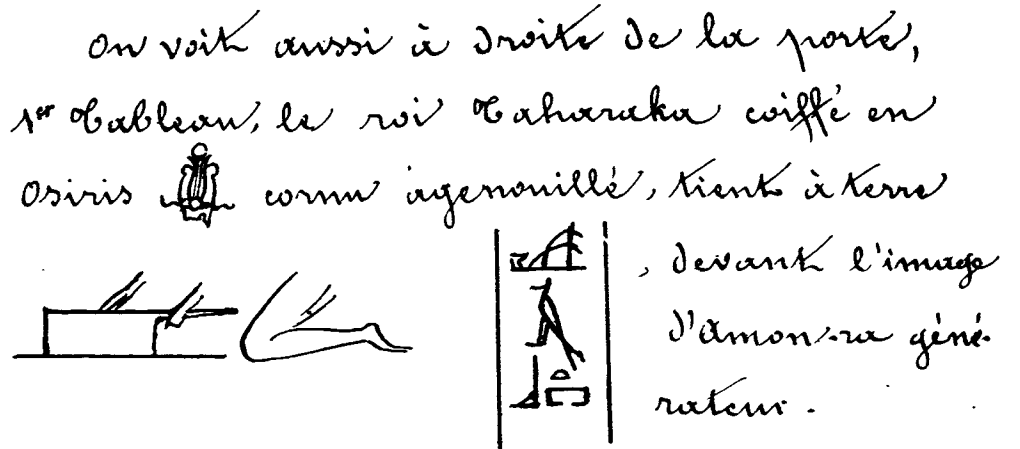 on voit aussi à droite de la porte,
1er Tableau, le roi Taharaka coiffé en
osiris cornu agenouillé, tient à terre
, devant l'image
d'Amon-ra géné-
rateur.